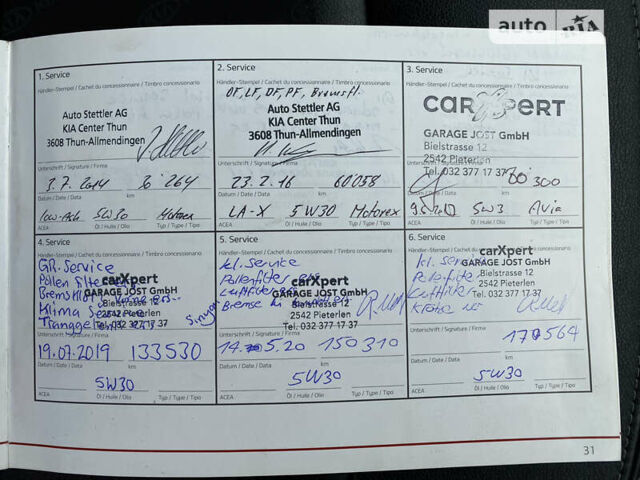 auto RIA
1. Service
Händler-Stempel / Cachet du concessionnaire / Timbro concessionario
Auto Stettler AG
KIA Center Thun
3608 Thun-Allmendingen
Unterschrift / Signature / Firma
3.7.2014 30 264
Datum / Date / Data km
low-Ash 5W30 Motorex
ACEA Öl / Huile / Olio Typ / Type / Tipo
2. Service
Händler-Stempel / Cachet du concessionnaire / Timbro concessionario
ÖF, LF, DF, PF, Bremsfl.
Auto Stettler AG
KIA Center Thun
3608 Thun-Allmendingen
Unterschrift / Signature / Firma
23.2.16 60058
Datum / Date / Data km
LA-X 5W30 Motorex
ACEA Öl / Huile / Olio Typ / Type / Tipo
3. Service
Händler-Stempel / Cachet du concessionnaire / Timbro concessionario
carXpert
GARAGE JOST GmbH
Bielstrasse 12
2542 Pieterlen
Tel. 032 377 17 37
Unterschrift / Signature / Firma
300
Datum / Date / Data km
5W3 Avia
ACEA Öl / Huile / Olio Typ / Type / Tipo
4. Service
Händler-Stempel / Cachet du concessionnaire / Timbro concessionario
GR. Service
Pollen Filter
carXpert
GARAGE JOST GmbH
Bielstrasse 12
Klima Service
2542 Pieterlen
Tel. 032 377 17 37
Unterschrift / Signature / Firma
19.07.2019 133530
Datum / Date / Data km
5W30
ACEA Öl / Huile / Olio Typ / Type / Tipo
5. Service
Händler-Stempel / Cachet du concessionnaire / Timbro concessionario
kl. Service
Pollenfilter
carXpert
Luftfilter
GARAGE JOST GmbH
Bremse
Bielstrasse 12
2542 Pieterlen
Tel. 032 377 17 37
Unterschrift / Signature / Firma
14.5.20 150310
Datum / Date / Data km
5W30
ACEA Öl / Huile / Olio Typ / Type / Tipo
6. Service
Händler-Stempel / Cachet du concessionnaire / Timbro concessionario
kl. Service
carXpert
GARAGE JOST GmbH
Bielstrasse 12
Luftfilter
2542 Pieterlen
Tel. 032 377 17 37
Unterschrift / Signature / Firma
170564
Datum / Date / Data km
5W30
ACEA Öl / Huile / Olio Typ / Type / Tipo
31